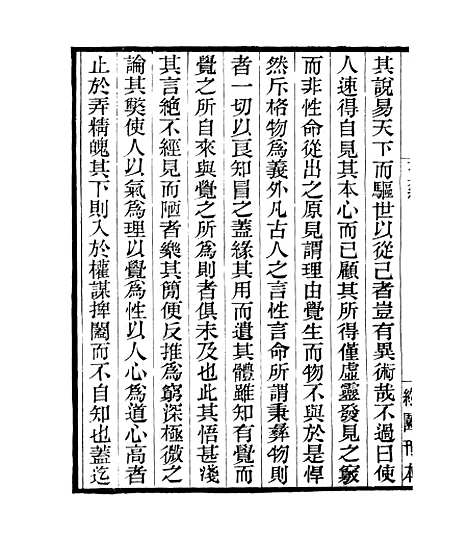 其說易天下而驅世以從己者豈有異術哉不過曰使
人速得自見其本心而已顧其所得僅虛靈發見之竅
而非性命從出之原見謂理由覺生而物不與於是悍
然斥格物為義外凡古人之言性言命所謂秉彝物則
者一切以良知冒之蓋緣其用而遺其體雖知有覺而
覺之所自來與覺之所為則者俱未及也此其悟甚淺
其言絶不經見而陋者樂其簡便反推為窮深極微之
論其獘使人以氣為理以覺為性以人心為道心高者
止於弄精魄其下則入於權謀捭闔而不自知也蓋迄